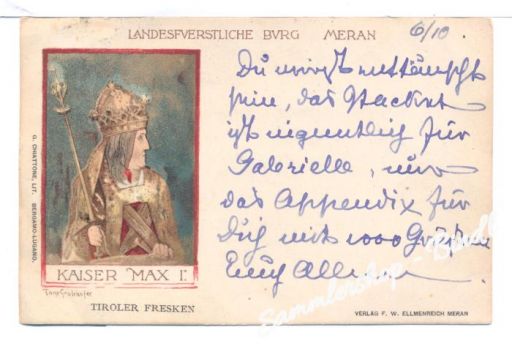 LANDESFVERSTLICHE BVRG MERAN
6/10.
Du wirst enttäuscht
sein, das Packet
ist eigentlich für
Gabrielle, nur
das Appendix für
Dich mit 1000 Grüßen
Euch Allen
G. CHIATTONE, LIT. BERGAMO-LUGANO.
KAISER MAX I.
TIROLER FRESKEN
VERLAG F. W. ELLMENREICH MERAN
Sammlershop